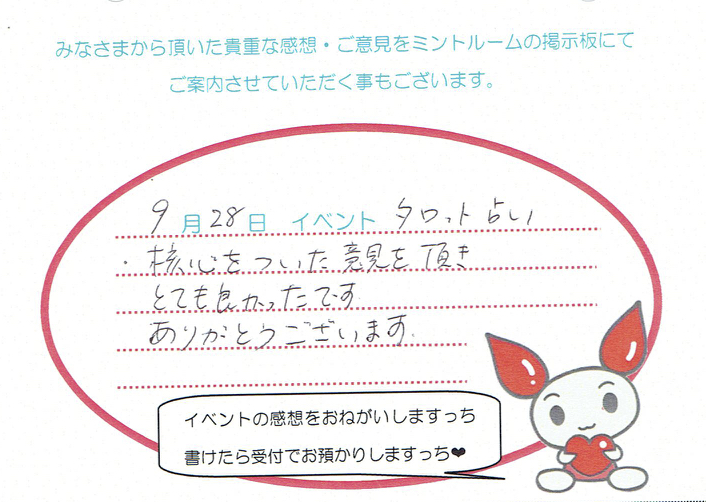 みなさまから頂いた貴重な感想・ご意見をミントルームの掲示板にて
ご案内させていただく事もございます。
9月28日 イベント タロット占い
・核心をついた意見を頂き
とても良かったです
ありがとうございます.
イベントの感想をおねがいしますっち
書けたら受付でお預かりしますっち❤